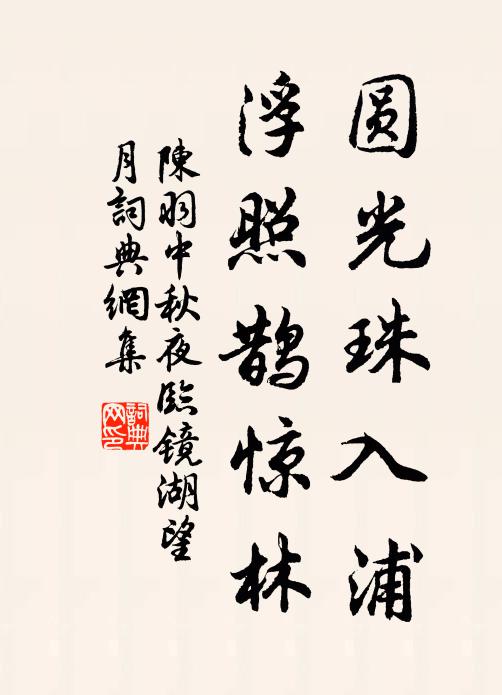 圆光珠入浦
浮照鹊惊林
陳羽中秋夜臨镜湖望
月詞典網集
詞典
网印